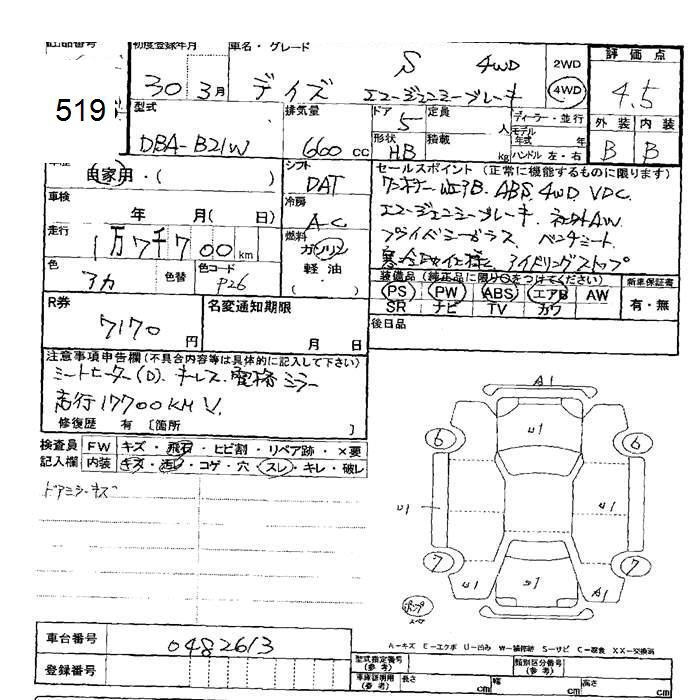 出品番号 初度登録年月 車名・グレード 評価点
519
30年 3月 デイズ S 4WD エマージェンシーブレーキ 2WD 4WD 4.5
型式 排気量 ドア 定員 ディーラー・並行 外装 内装
DBA-B21W 660 cc 5 人 モデル年式 年 B B
形状 積載 HB kg ハンドル 左・右
車歴 シフト セールスポイント(正常に機能するものに限ります)
自家用・( ) DAT ワンオナー WエアB. ABS. 4WD VDC.
車検 冷房 エマージェンシーブレーキ. 社外AW.
年 月( 日) A-C プライバシーガラス ベンチシート
走行 燃料 寒冷地仕様 アイドリングストップ
1万7千700km ガソリン
軽油・
色 色替 色コード ( ) 装備品(純正品に限り○をつけてください) 新車保証書
アカ P26 PS PW ABS エアB AW 有・無
SR ナビ TV カワ
R券 名変通知期限 後日品
7170円 月 日
注意事項申告欄(不具合内容等は具体的に記入して下さい)
シートヒーター(D). キーレス. 電格ミラー
走行17700KM V.
修復歴 有〔箇所 〕
検査員 FW キズ・飛石・ヒビ割・リペア跡・×要
記入欄 内装 キズ・汚れ・コゲ・穴・スレ・キレ・破レ
ドアミラーキズ
A1
6 U1 6
U1 U1
7 7
U1 U1 A1
ポンプ
スペア
A-キズ E-エクボ U-凹み W-補修跡 S-サビ C-腐食 XX-交換済
車台番号 0482613
型式指定番号(参考) 類別区分番号(参考)
登録番号 車庫証明用(参考) 長さ cm 幅 cm 高さ cm